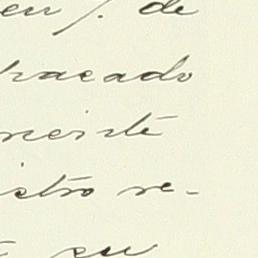 en /. de
hacado
mente
istro re-
su